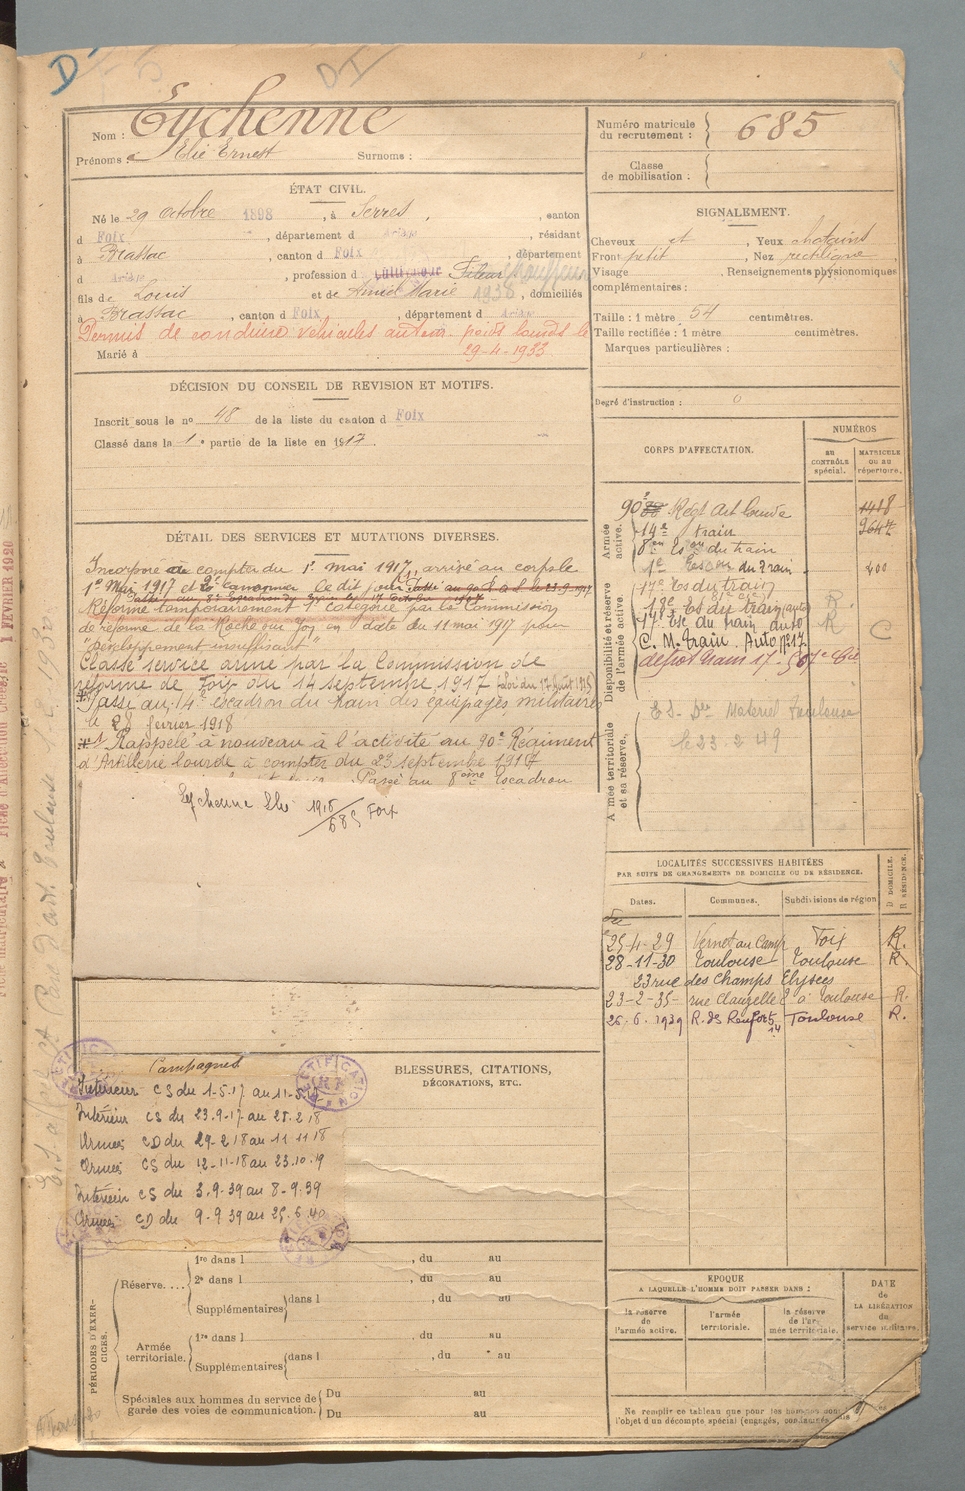 D
D I
Nom : Eychenne
Prénoms : Elie Ernest Surnoms :
ÉTAT CIVIL.
Né le 29 Octobre 1898, à Serres, canton
d Foix, département d Ariège, résidant
à Brassac, canton d Foix, département
d Ariège, profession d Fileur Chauffeur
fils de Louis et de Marie 1938, domiciliés
à Brassac, canton d Foix, département d Ariège
Permis de conduire véhicules autom. poids lourds le
29-4-1933
Marié à
DÉCISION DU CONSEIL DE REVISION ET MOTIFS.
Inscrit sous le no 48 de la liste du canton d Foix
Classé dans la 1e partie de la liste en 1917.
DÉTAIL DES SERVICES ET MUTATIONS DIVERSES.
Incorporé à compter du 1er mai 1917, arrivé au corps le
1er Mai 1917 et 2e canonnier Ce dit jour. Passé au 90e R.A.L. le 23.9.1917
Réformé temporairement 1e catégorie par la Commission
de réforme de la Roche sur Yon en date du 11 mai 1917 pour
"développement insuffisant"
Classé service armé par la Commission de
réforme de Foix du 14 septembre 1917
Passé au 14e escadron du train des équipages militaires
le 28 février 1918
Rappelé à nouveau à l'activité au 90e Régiment
d'Artillerie lourde à compter du 23 septembre 1917
Passé au 8ème Escadron
Eychenne Elie 1918/685 Foix
Campagnes
Intérieur CS du 1-5.17 au 11-5.17
Intérieur CS du 23.9-17 au 28.2.18
Armées CD du 29-2 18 au 11 11 18
Armées CS du 12-11-18 au 23.10.19
Intérieur CS du 3.9.39 au 8-9.39
Armées CD du 9-9 39 au 25.6.40
RECTIFICATION
BLESSURES, CITATIONS,
DÉCORATIONS, ETC.
PÉRIODES D'EXERCICES.
Réserve....
1re dans l , du au
2e dans l , du au
Supplémentaires dans l , du au
Armée territoriale.
1re dans l , du au
Supplémentaires dans l , du au
Spéciales aux hommes du service de garde des voies de communication.
Du au
Du au
Numéro matricule
du recrutement : 685
Classe
de mobilisation :
SIGNALEMENT.
Cheveux et, Yeux chatains
Front petit, Nez rectiligne,
Visage , Renseignements physionomiques
complémentaires :
Taille : 1 mètre 54 centimètres.
Taille rectifiée : 1 mètre centimètres.
Marques particulières :
Degré d'instruction : 0
CORPS D'AFFECTATION.
NUMÉROS
au CONTRÔLE spécial.
MATRICULE ou au répertoire.
Armée active.
90e Régt Art lourde 1418
14e train
8e Eson du train
1e Escon du Train 200
Disponibilité et réserve de l'armée active.
17e Es du train
18e Es du train R
17e Esc du train auto R
C. M. train. Auto no 17 C
depot train 17
Armée territoriale et sa réserve.
Matériel Toulouse
le 23.2 49
LOCALITÉS SUCCESSIVES HABITÉES
PAR SUITE DE CHANGEMENTS DE DOMICILE OU DE RÉSIDENCE.
Dates. Communes. Subdivisions de région D DOMICILE. R RÉSIDENCE.
25-4-29 Vernet au Camp Foix R.
28-11-30 Toulouse Toulouse R.
23 rue des Champs Elysées
23-2-35- rue Clauzelle 8 à Toulouse R.
26.6.1939 R. des Renforts 14 Toulouse R.
EPOQUE
A LAQUELLE L'HOMME DOIT PASSER DANS :
la réserve de l'armée active.
l'armée territoriale.
la réserve de l'armée territoriale.
DATE
de
LA LIBÉRATION
du
service militaire.
Ne remplir ce tableau que pour les hommes
l'objet d'un décompte spécial (engagés,
1 FEVRIER 1920